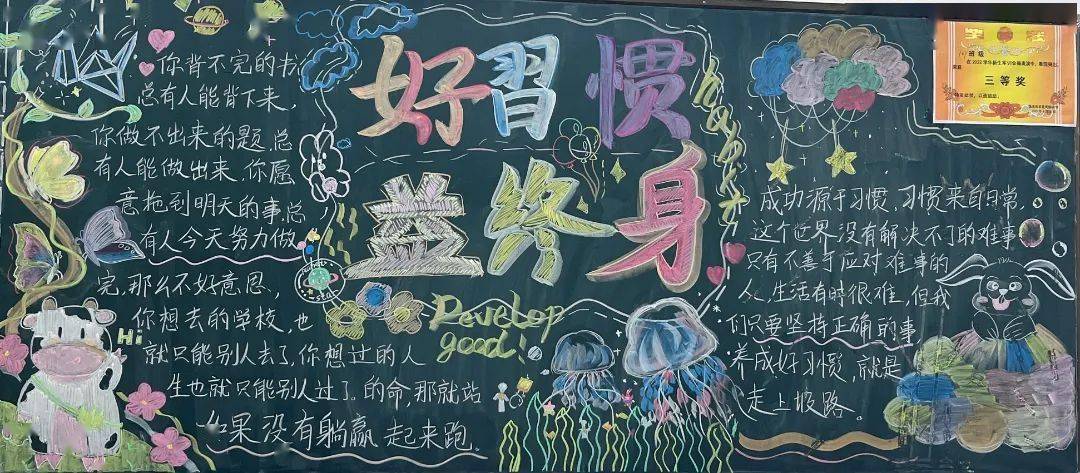 好習惯
益终身
你背不完的书
总有人能背下来
你做不出来的题,总
有人能做出来,你愿
意拖到明天的事,总
有人今天努力做
完,那么不好意思,
你想去的学校,也
就只能别人去了,你想过的人
生也就只能别人过了。的命,那就站
如果没有躺赢 起来跑。
Hi
Develop
good!
成功源于习惯,习惯来自日常,
这个世界没有解决不了的难事
只有不善于应对难事的
人,生活有时很难,但我
们只要坚持正确的事
养成好习惯,就是
走上坡路。
奖 状
班级
三等奖